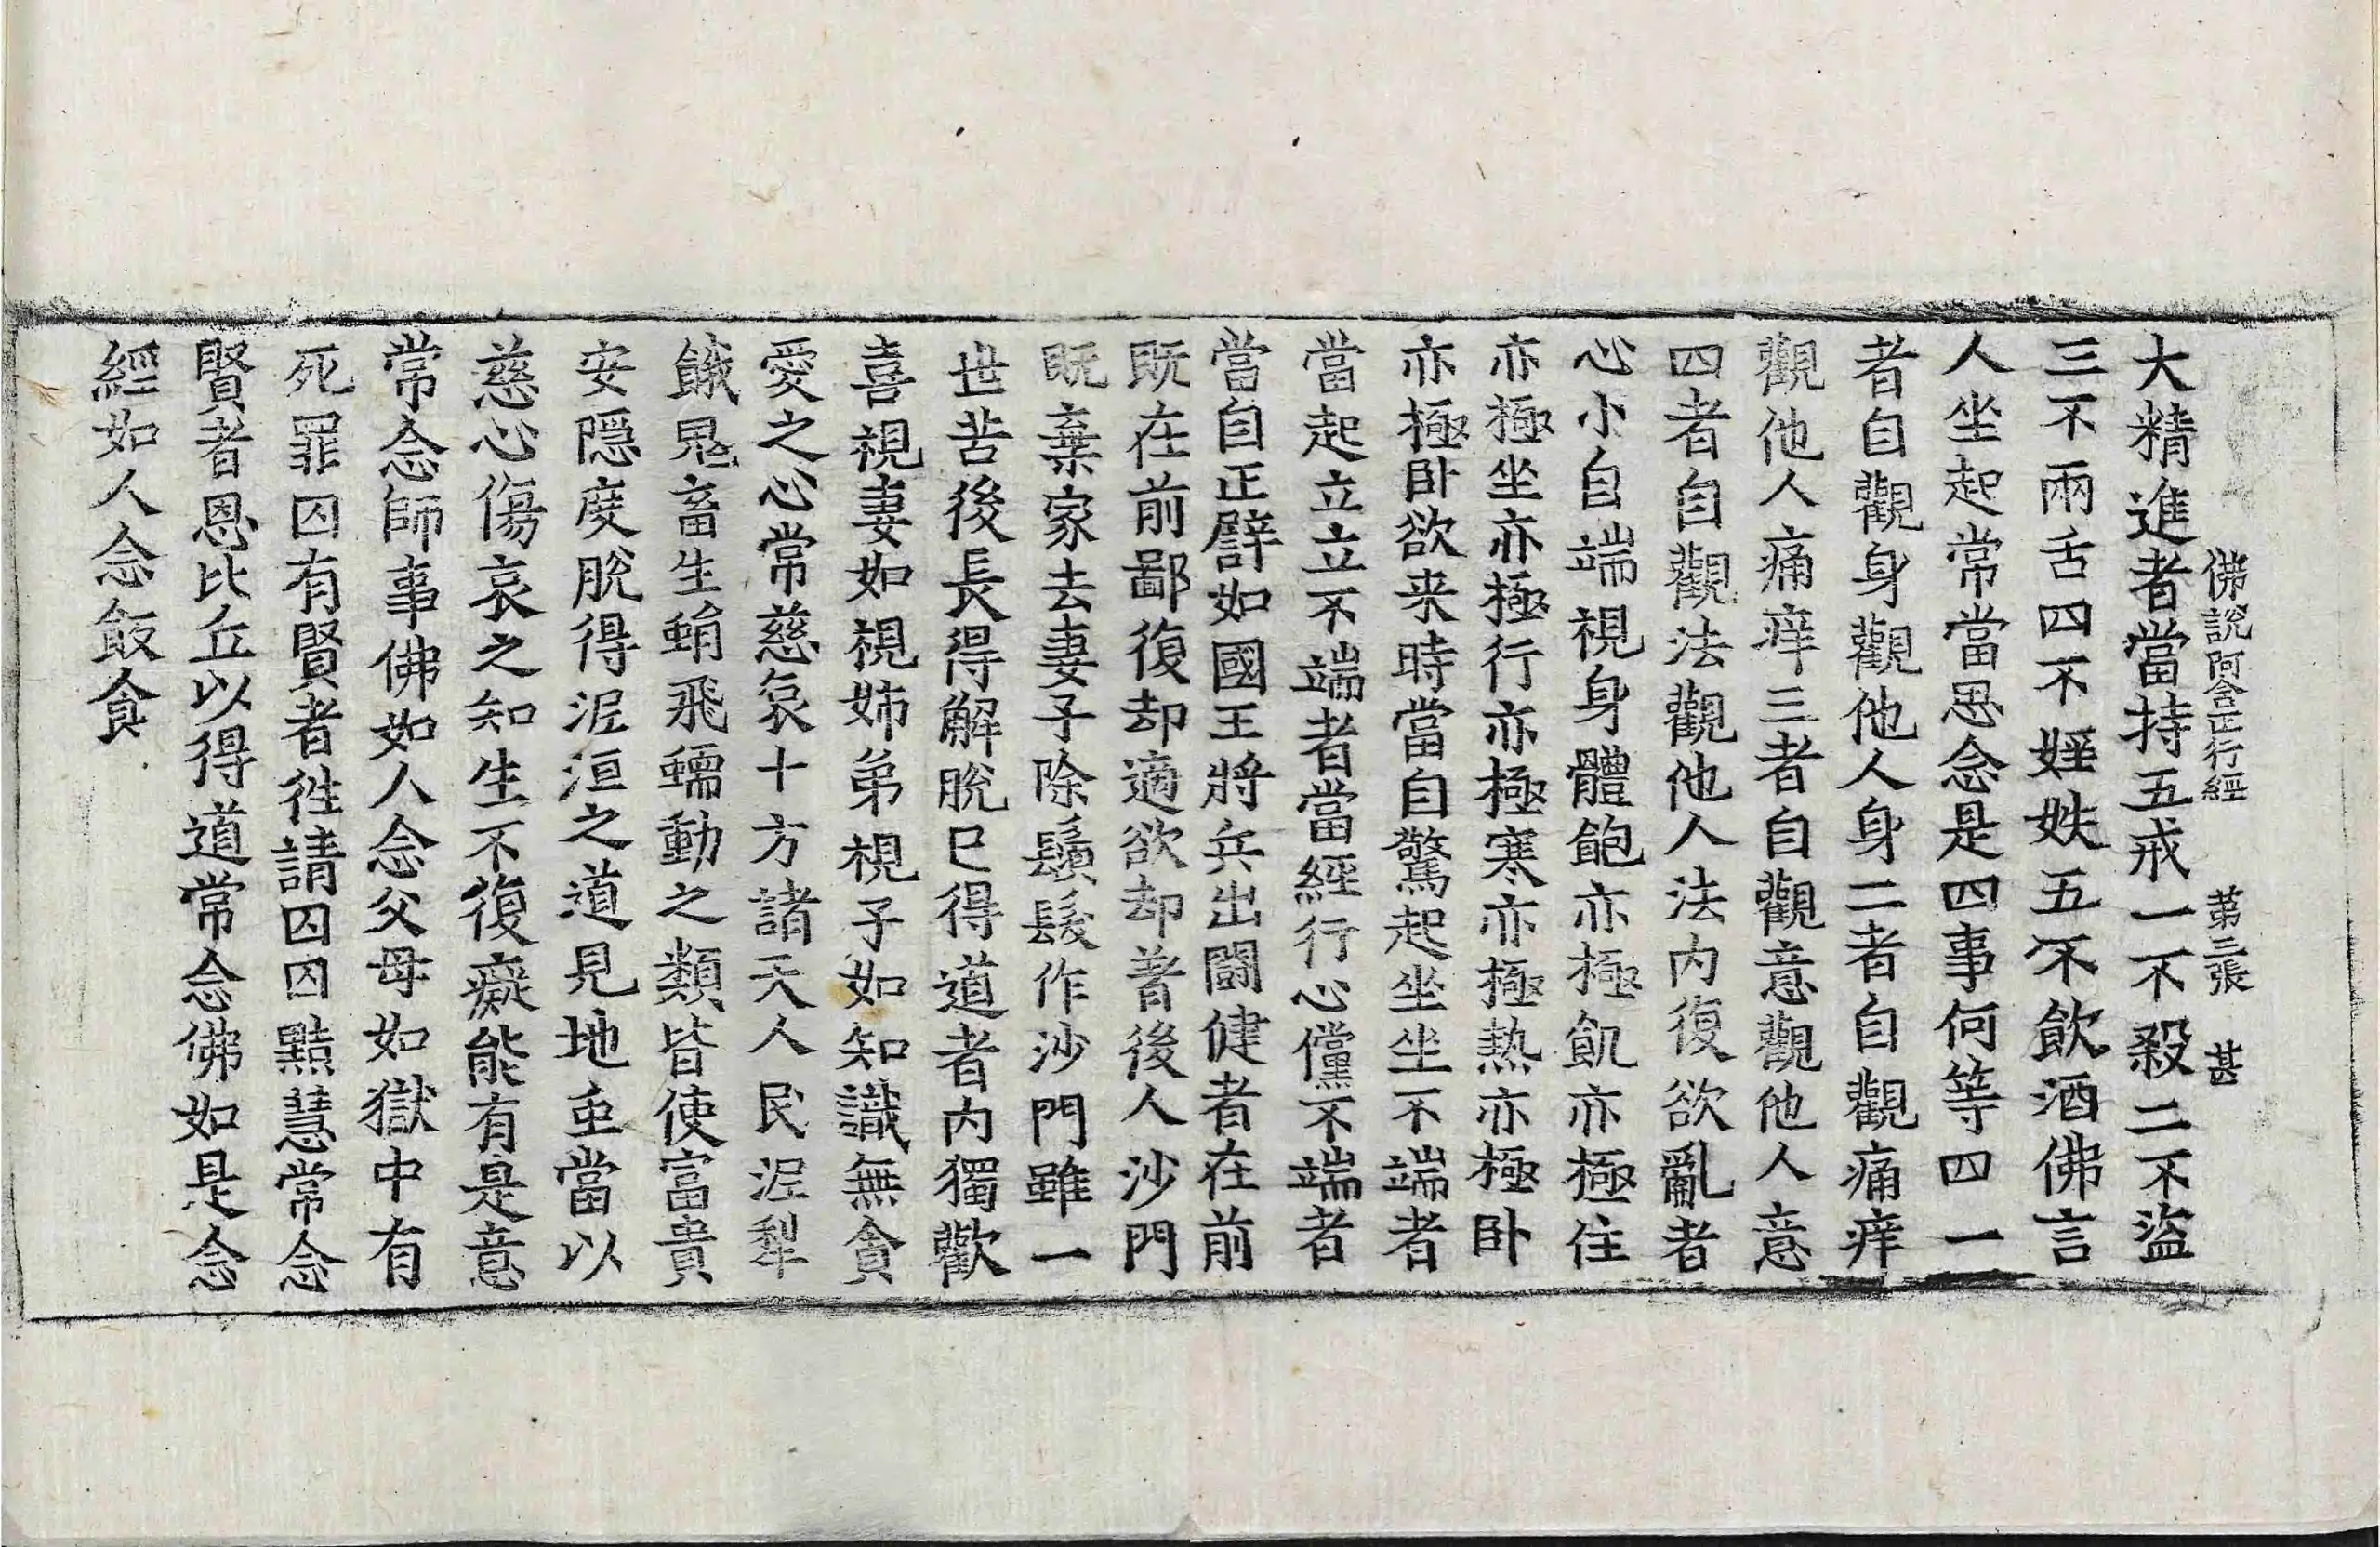 佛說阿含正行經 第三張 甚
大精進者當持五戒一不殺二不盜
三不兩舌四不婬妷五不飲酒佛言
人坐起常當思念是四事何等四一
者自觀身觀他人身二者自觀痛痒
觀他人痛痒三者自觀意觀他人意
四者自觀法觀他人法内復欲亂者
心小自端視身體飽亦極飢亦極住
亦極坐亦極行亦極寒亦極熱亦極卧
亦極卧欲来時當自驚起坐坐不端者
當起立立不端者當經行心儻不端者
當自正譬如國王將兵出鬪健者在前
既在前鄙復却適欲却著後人沙門
既棄家去妻子除鬚髮作沙門雖一
世苦後長得解脫已得道者内獨歡
喜視妻如視姉弟視子如知識無貪
愛之心常慈哀十方諸天人民泥犁
餓鬼畜生蜎飛蠕動之類皆使富貴
安隱度脫得泥洹之道見地虫當以
慈心傷哀之知生不復癡能有是意
常念師事佛如人念父母如獄中有
死罪囚有賢者徃請囚囚黠慧常念
賢者恩比丘以得道常念佛如是念
經如人念飯食